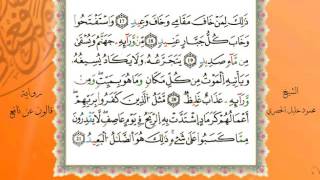 الشيخ
محمود خليل الحصري
ذَٰلِكَ لِمَنْ خَافَ مَقَامِي وَخَافَ وَعِيدِ وَاسْتَفْتَحُوا
وَخَابَ كُلُّ جَبَّارٍ عَنِيدٍ مِّنْ وَرَآئِهِ جَهَنَّمُ وَيُسْقَىٰ
مِن مَّآءٍ صَدِيدٍ يَتَجَرَّعُهُ وَلَا يَكَادُ يُسِيغُهُ
وَيَأْتِيهِ الْمَوْتُ مِن كُلِّ مَكَانٍ وَمَا هُوَ بِمَيِّتٍ وَمِنْ
وَرَآئِهِ عَذَابٌ غَلِيظٌ مَّثَلُ الَّذِينَ كَفَرُوا بِرَبِّهِمْ
أَعْمَالُهُمْ كَرَمَادٍ اشْتَدَّتْ بِهِ الرِّيَٰحُ فِي يَوْمٍ عَاصِفٍ لَّا يَقْدِرُونَ
مِمَّا كَسَبُوا عَلَىٰ شَيْءٍ ذَٰلِكَ هُوَ الضَّلَٰلُ الْبَعِيدُ
رواية
قالون عن نافع